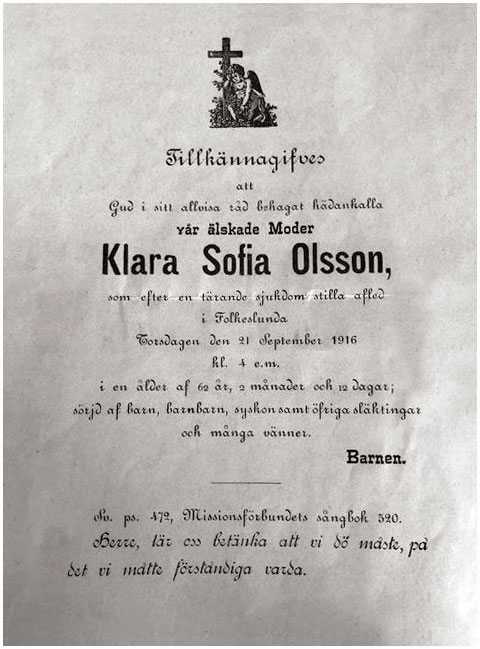 Tillkännagifves
att
Gud i sitt allvisa råd behagat hädankalla
vår älskade Moder
Klara Sofia Olsson,
som efter en tärande sjukdom stilla afled
i Folkeslunda
Torsdagen den 21 September 1916
kl. 4 e.m.
i en ålder af 62 år, 2 månader och 12 dagar;
sörjd af barn, barnbarn, syskon samt öfriga släktingar
och många vänner.
Barnen.
Sv. ps. 472, Missionsförbundets sångbok 520.
Herre, lär oss betänka att vi dö måste, på
det vi måtte förståndiga varda.